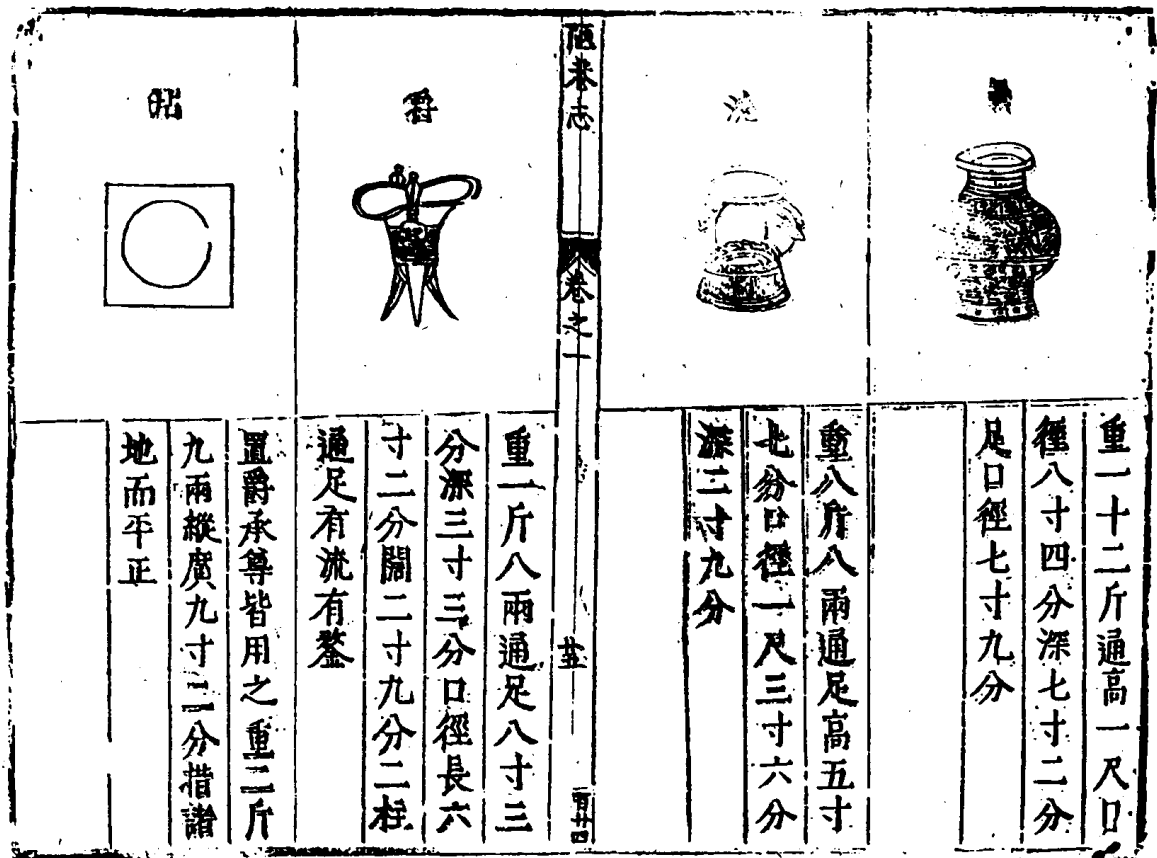 重一十二斤通高一尺口
徑八寸四分深七寸二分
足口徑七寸九分
洗
重八斤八兩通足高五寸
七分口徑一尺三寸六分
深二寸九分
陋巷志
卷之一
廿五
一百廿四
爵
重一斤八兩通足八寸三
分深三寸三分口徑長六
寸二分闊二寸九分二柱
通足有流有鋬
坫
置爵承尊皆用之重二斤
九兩縱廣九寸二分措諸
地而平正